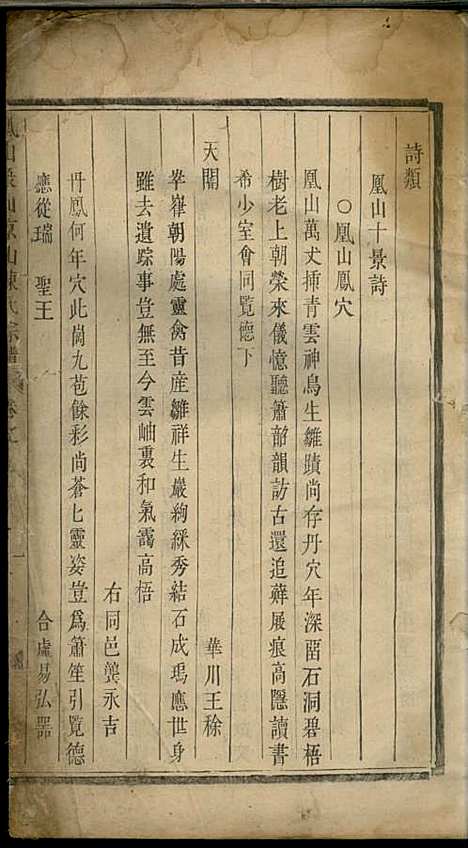 詩類
凰山十景詩
○凰山鳳穴
凰山萬丈揷青雲神鳥生雛蹟尚存丹穴年深苗石洞碧梧
樹老上朝榮來儀憶聽簫韶韻訪古還追蘚屐痕高隱讀書
希少室會同覧德下
天闕 華川王稌
崒嵂朝陽處靈禽昔産雛祥生巖絢綵秀結石成瑪應世身
雖去遺踪事豈無至今雲岫裏和氣靄高梧
右同邑龔永吉
丹鳳何年穴此崗九苞餘彩尚蒼匕靈姿豈爲簫笙引覧德
應從瑞 聖王 合虚易弘噐
陳氏宗譜